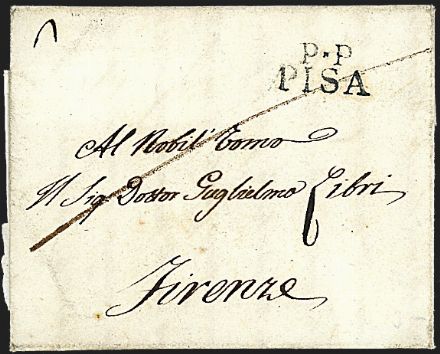 P. P
PISA
Al Nobil' Uomo
Il Sig. Dottor Guglielmo Libri
Firenze